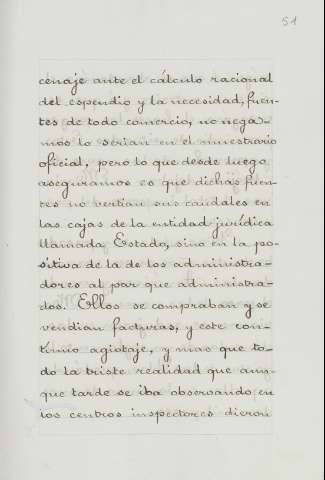 51
cenaje ante el cálculo racional
del espendio y la necesidad, fuen-
tes de todo comercio, no nega-
mos lo serian en el muestrario
oficial, pero lo que desde luego
aseguramos es que dichas fuen-
tes no vertian sus caudales en
las cajas de la entidad jurídica
llamada Estado, sino en la po-
sitiva de la de los administra-
dores al par que administra-
dos. Ellos se compraban y se
vendian facturas, y este con-
tinuo agiotaje, y mas que to-
do la triste realidad que aun-
que tarde se iba observando en
los centros inspectores dieron